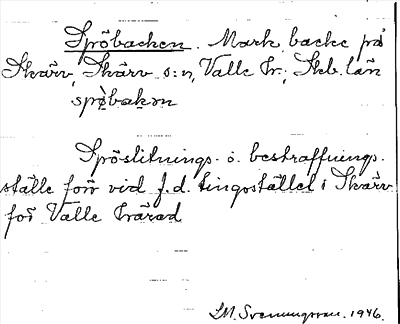 Spöbacken. Mark, backe på
Skärv, Skärv s:n, Valle hr., Skb. län
spöbakən
Spöslitnings- o. bestraffnings-
ställe förr vid f.d. tingsstället i Skärv
för Valle härad
L.M. Svenungsson. 1946.